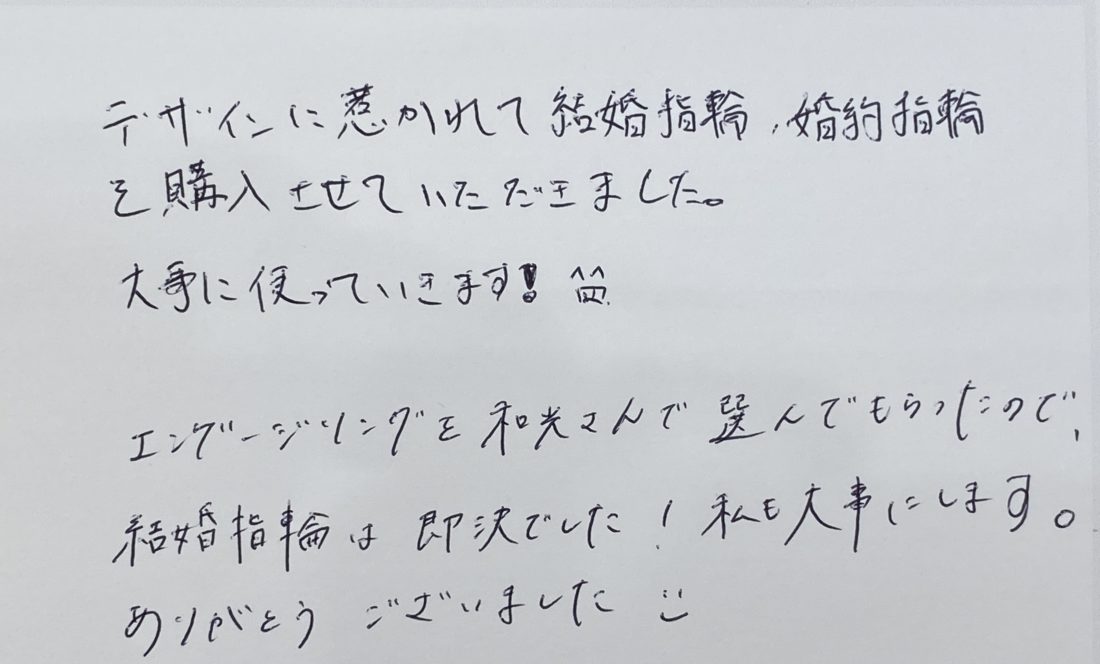 デザインに惹かれて結婚指輪、婚約指輪
を購入させていただきました。
大事に使っていきます! ^^
エンゲージリングを和光さんで選んでもらったので、
結婚指輪は即決でした! 私も大事にします。
ありがとうございました :)